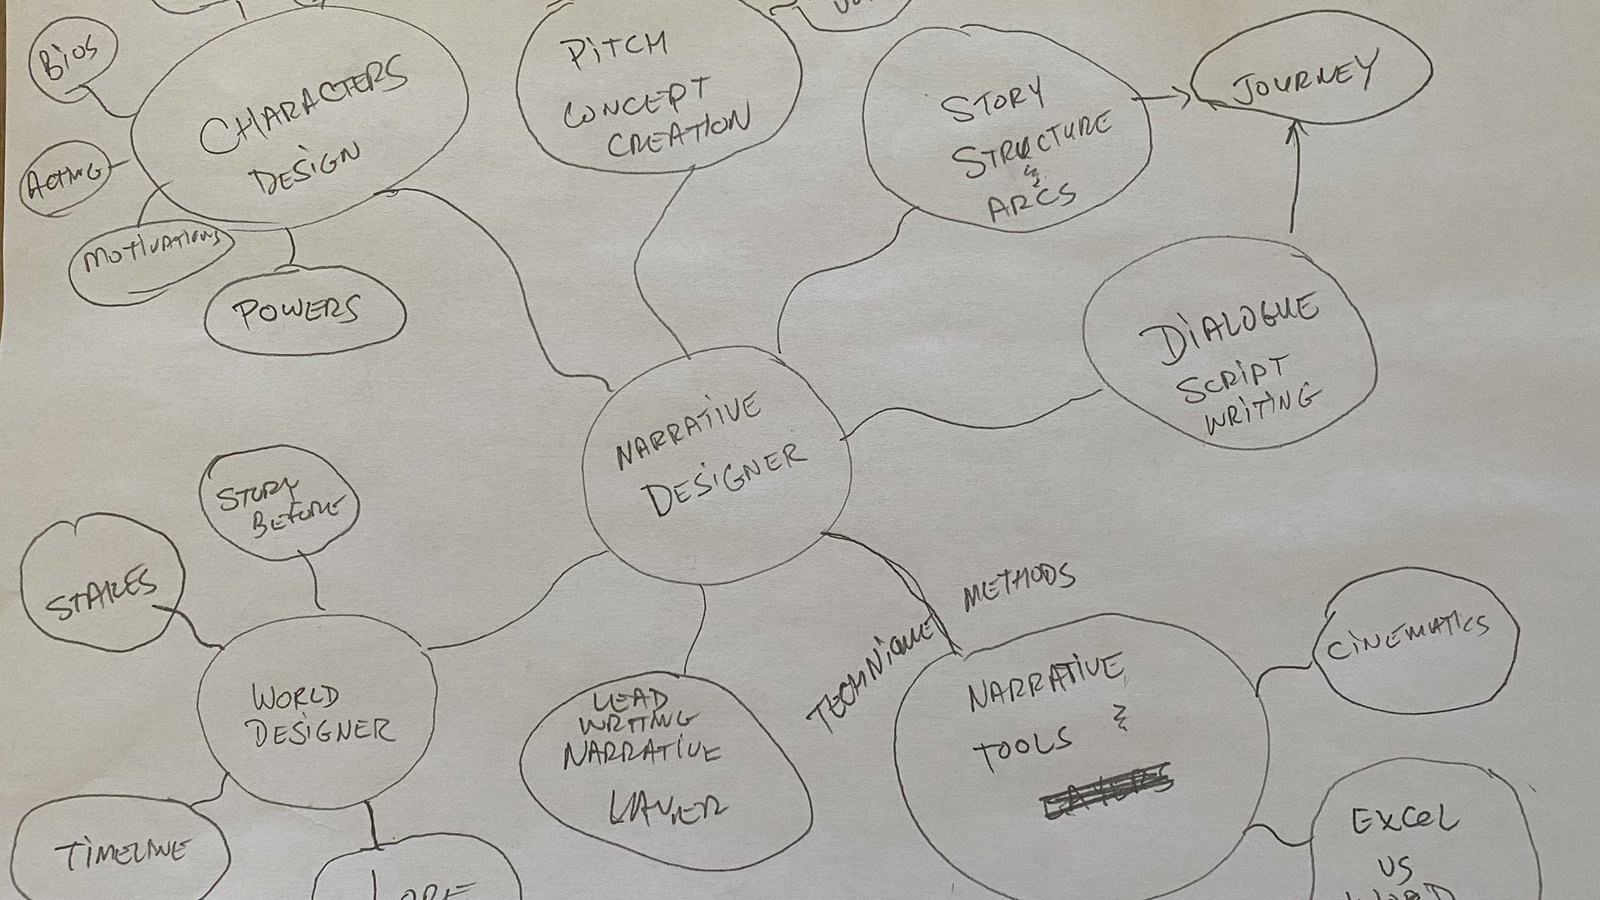 BIOS
ACTING
MOTIVATIONS
POWERS
CHARACTERS
DESIGN
PITCH
CONCEPT
CREATION
STORY
STRUCTURE
&
ARCS
JOURNEY
DIALOGUE
SCRIPT
WRITING
NARRATIVE
DESIGNER
STORY
BEFORE
STAKES
WORLD
DESIGNER
TIMELINE
LORE
LEAD
WRITING
NARRATIVE
LAYER
TECHNIQUE
METHODS
NARRATIVE
TOOLS &
CINEMATICS
EXCEL
VS
WORD